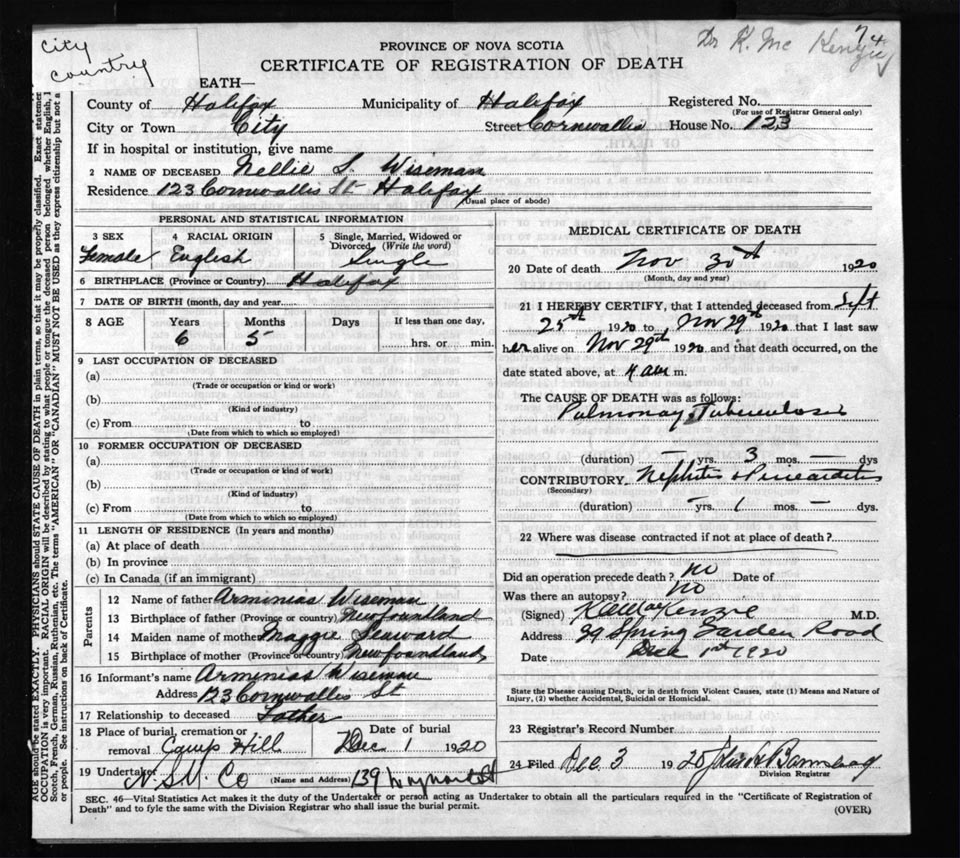 City
Country
Dr K. Mc Kenzie
74
PROVINCE OF NOVA SCOTIA
CERTIFICATE OF REGISTRATION OF DEATH
EATH—
County of Halifax Municipality of Halifax Registered No.
(For use of Registrar General only)
City or Town City Street Cornwallis House No. 123
If in hospital or institution, give name
2 NAME OF DECEASED Nellie S. Wiseman
Residence 123 Cornwallis St Halifax
(Usual place of abode)
PERSONAL AND STATISTICAL INFORMATION
3 SEX 4 RACIAL ORIGIN 5 Single, Married, Widowed or Divorced (Write the word)
Female English Single
6 BIRTHPLACE (Province or Country) Halifax
7 DATE OF BIRTH (month, day and year)
8 AGE Years Months Days If less than one day,
6 5 hrs. or min.
9 LAST OCCUPATION OF DECEASED
(a)
(Trade or occupation or kind or work)
(b)
(Kind of industry)
(c) From to
(Date from which to which so employed)
10 FORMER OCCUPATION OF DECEASED
(a)
(Trade or occupation or kind of work)
(b)
(Kind of industry)
(c) From to
(Date from which to which so employed)
11 LENGTH OF RESIDENCE (In years and months)
(a) At place of death
(b) In province
(c) In Canada (if an immigrant)
Parents
12 Name of father Arminias Wiseman
13 Birthplace of father (Province or country) Newfoundland
14 Maiden name of mother Maggie Seaward
15 Birthplace of mother (Province or country) Newfoundland
16 Informant's name Arminias Wiseman
Address 123 Cornwallis St
17 Relationship to deceased Father
18 Place of burial, cremation or Date of burial
removal Camp Hill Dec 1 1920
19 Undertaker N.S.U. Co (Name and Address) 139
MEDICAL CERTIFICATE OF DEATH
20 Date of death Nov 30th 1920
(Month, day and year)
21 I HEREBY CERTIFY, that I attended deceased from Sept
25th 1920 to Nov 29th 1920 that I last saw
her alive on Nov 29th 1920 and that death occurred, on the
date stated above, at 4 am m.
The CAUSE OF DEATH was as follows:
Pulmonay Tuberculosis
(duration) — yrs. 3 mos. — dys
CONTRIBUTORY Nephritis
(Secondary)
(duration) — yrs. 1 mos. — dys.
22 Where was disease contracted if not at place of death?
Did an operation precede death? no Date of
Was there an autopsy? no
(Signed) K MacKenzie M.D.
Address 99 Spring Garden Road
Date Dec 1st 1920
State the Disease causing Death, or in death from Violent Causes, state (1) Means and Nature of
Injury, (2) whether Accidental, Suicidal or Homicidal.
23 Registrar's Record Number
24 Filed Dec 3 1920
Division Registrar
SEC. 46—Vital Statistics Act makes it the duty of the Undertaker or person acting as Undertaker to obtain all the particulars required in the "Certificate of Registration of
Death" and to fyle the same with the Division Registrar who shall issue the burial permit.
(OVER)
AGE should be stated EXACTLY. PHYSICIANS should STATE CAUSE OF DEATH in plain terms, so that it may be properly classified. Exact statement
OCCUPATION is very important. RACIAL ORIGIN will be described by stating to what people or tongue the deceased person belonged whether English, I
Scotch, French, German, Russian, Ruthenian, etc. The terms "AMERICAN" OR "CANADIAN" MUST NOT BE USED as they express citizenship but not a
or people. See instructions on back of Certificate.